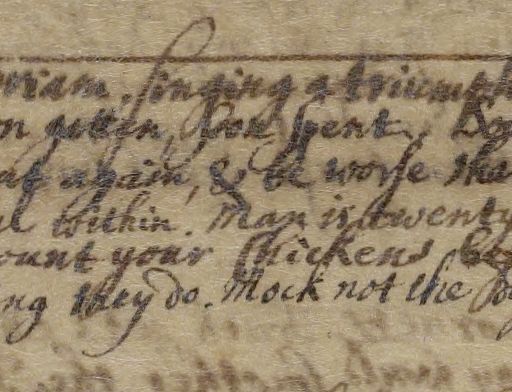 singing a triumph
gotten, soon spent.
again, & be worse tha
within. Man is twenty
ount your Chickens be
ing they do. Mock not the